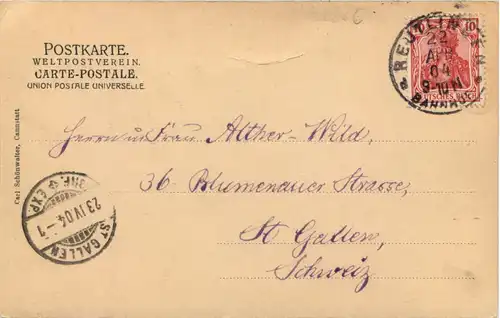 POSTKARTE.
WELTPOSTVEREIN.
CARTE-POSTALE.
UNION POSTALE UNIVERSELLE.
REUTLINGEN
22
APR
04
9-10 N
BAHNHOF
10
Herrn u Frau Alther-Wild,
36 Blumenauer Strasse,
St Gallen,
Schweiz
BRF. EXP.
23 IV 04 - 1
ST GALLEN
Carl Schönwalter, Cannstatt